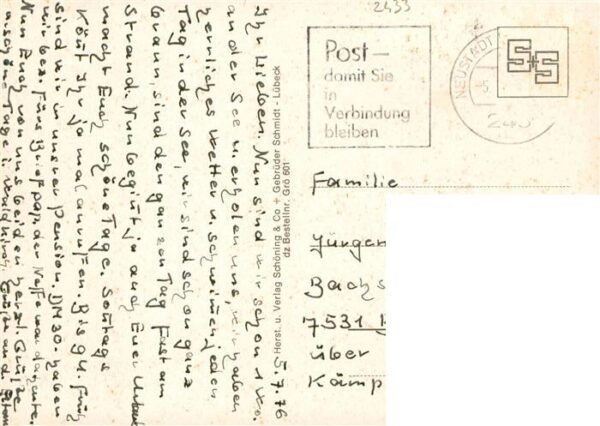 2433
Post –
damit Sie
in
Verbindung
bleiben
NEUSTADT
-5.
243
S+S
Familie
Jürgen
Bachs
7531
über
Kämp
Herst. u. Verlag Schöning & Co + Gebrüder Schmidt - Lübeck
dz Bestellnr. Grö 601
5.7.76
Ihr Lieben. Nun sind wir schon 1 Wo.
an der See u. erholen uns, wir haben
herrliches Wetter u. schwimmen jeden
Tag in der See, wir sind schon ganz
braun, sind den ganzen Tag fast am
Strand. Nun beginnt ja auch Euer Urlaub
macht Euch schöne Tage. Sonntags
Könnt Ihr ja mal anrufen. Bis 9 U. früh
sind wir in unsrer Pension. DM 30.- haben
wir bez. fürs
Nun Euch von uns beiden herzl. Grüße
schöne Tage